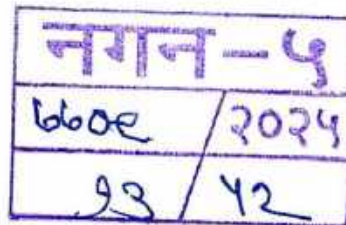 नगन-५
७७०९ / २०२५
१३ / ५२